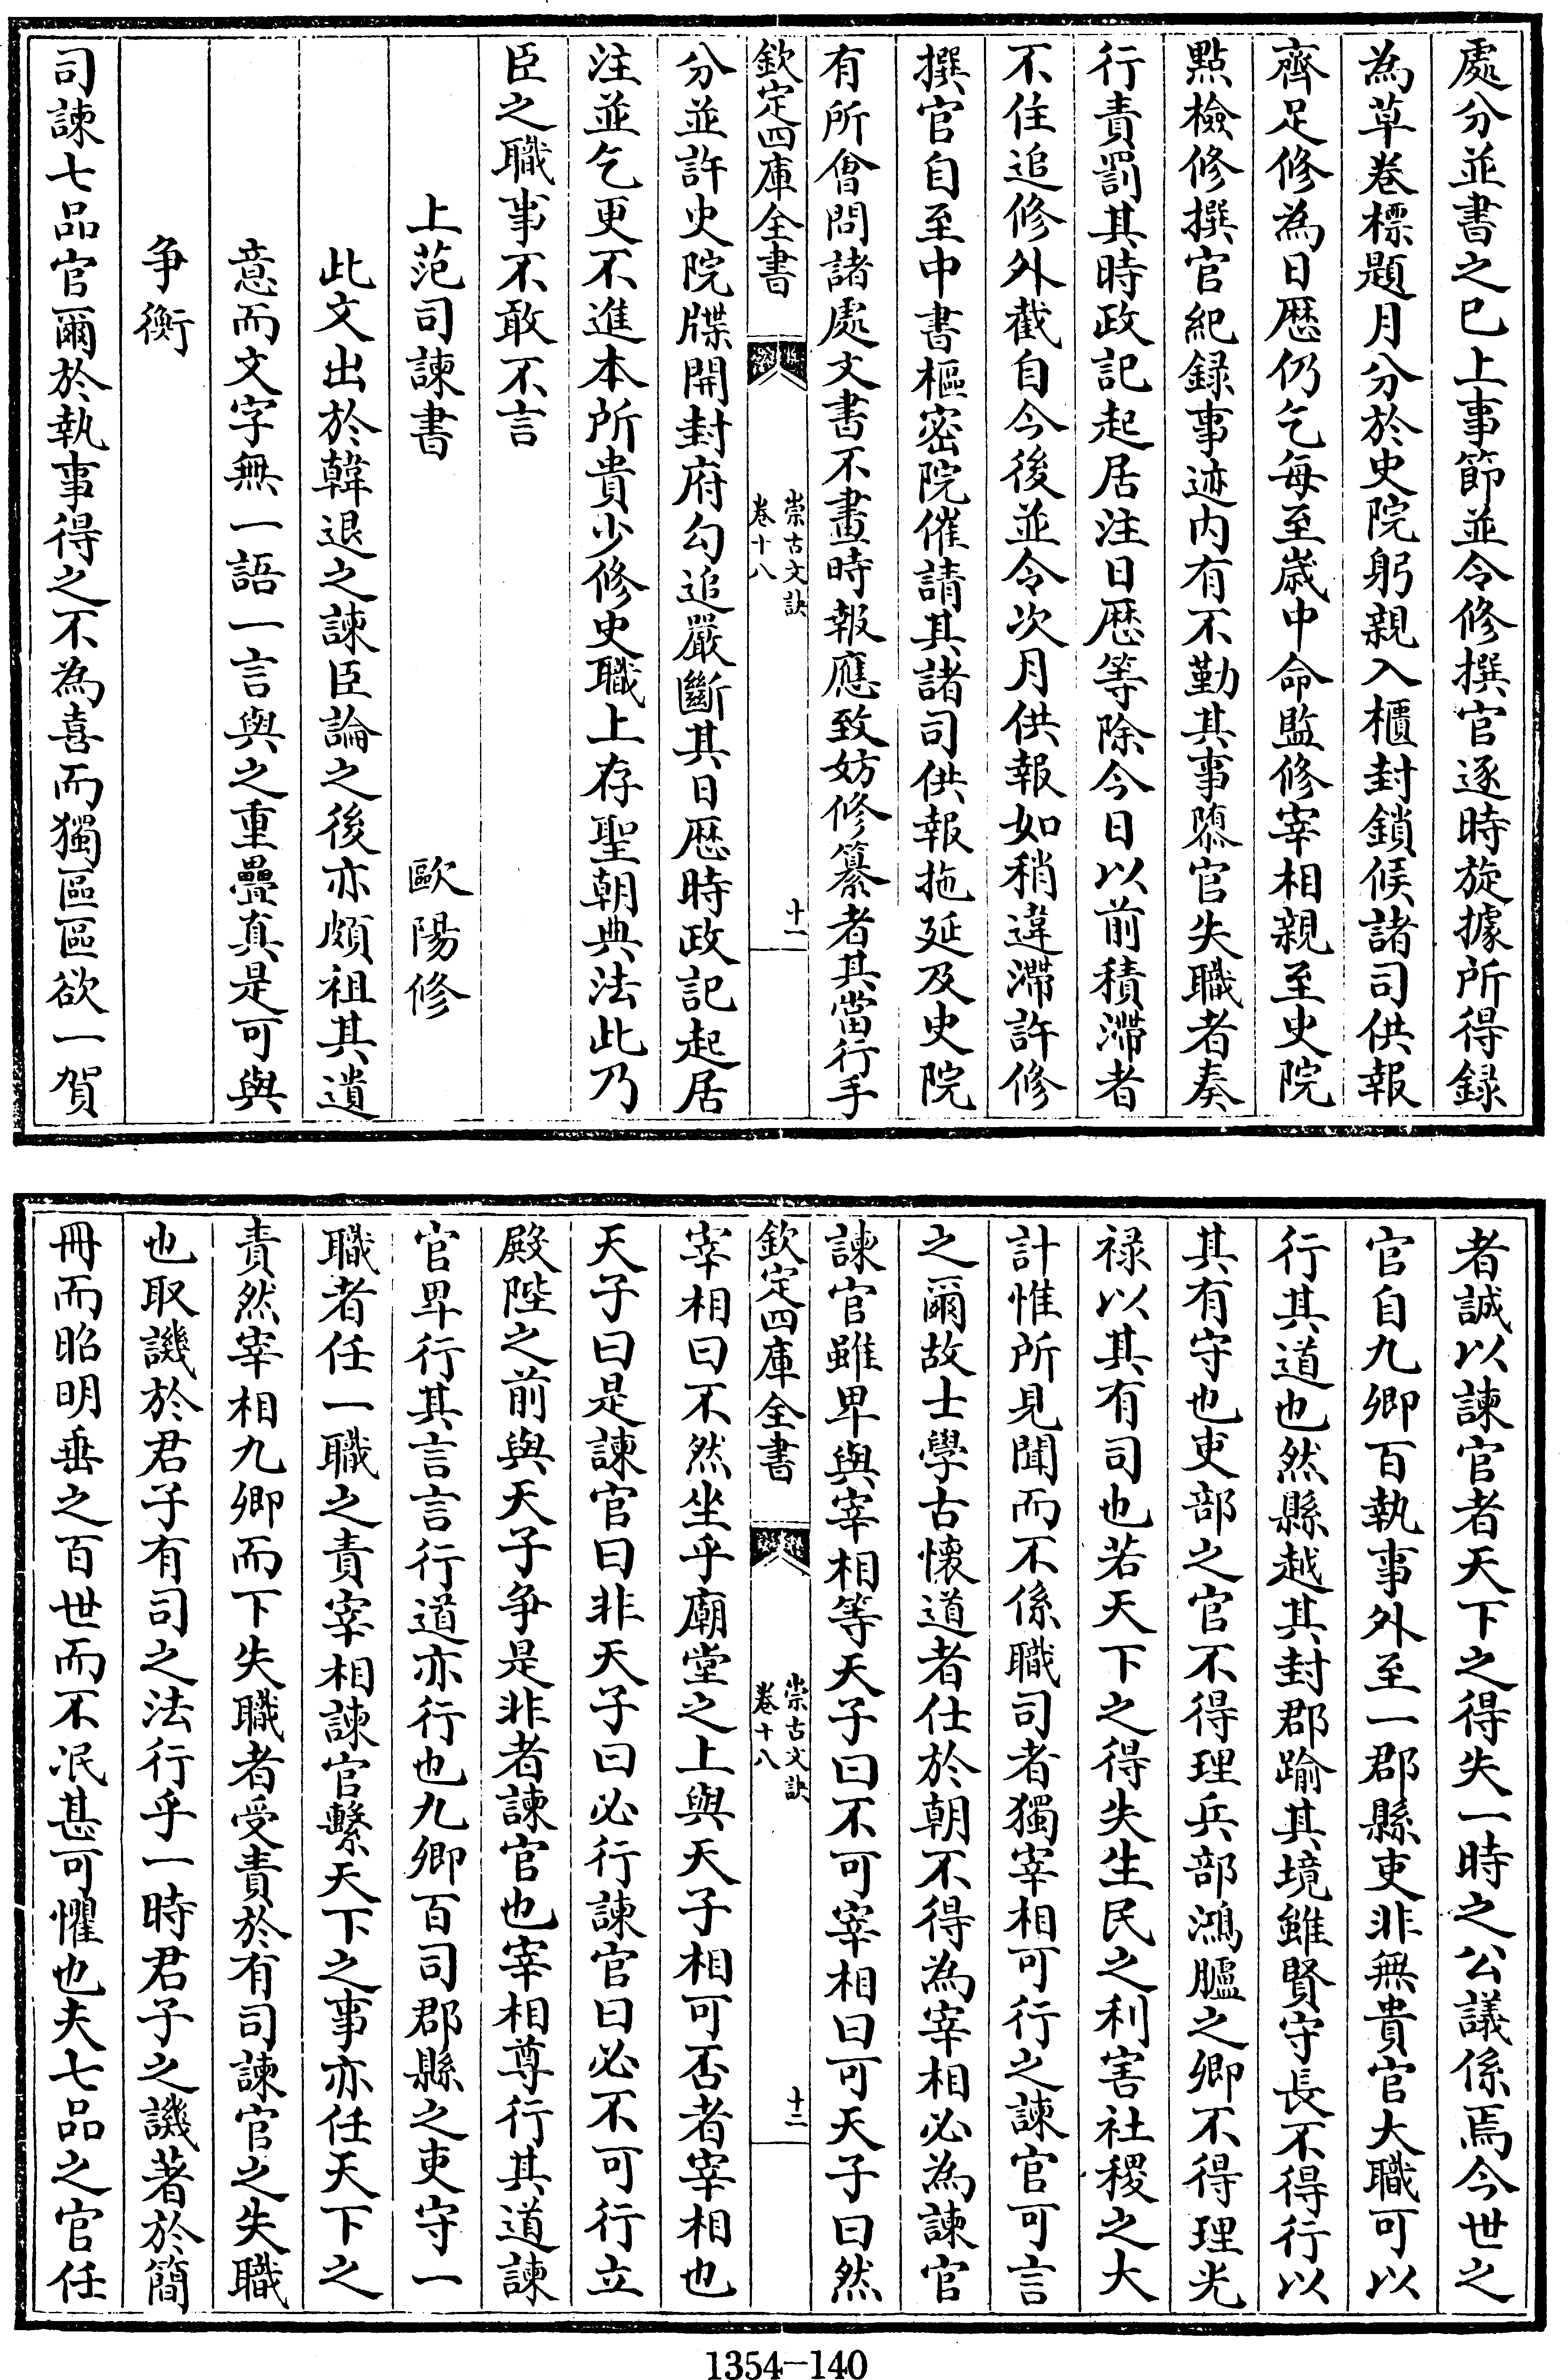 處分並書之已上事節並令修撰官逐時旋據所得錄
為草卷標題月分於史院躬親入櫃封鎖候諸司供報
齊足修為日厯仍乞每至嵗中命監修宰相親至史院
點檢修撰官紀録事迹内有不勤其事隳官失職者奏
行責罰其時政記起居注日厯等除今日以前積滯者
不住追修外截自今後並令次月供報如稍違滯許修
撰官自至中書樞密院催請其諸司供報拖延及史院
有所㑹問諸處文書不畫時報應致妨修纂者其當行手
欽定四庫全書
崇古文訣
卷十八
十一
分並許史院牒開封府勾追嚴斷其日厯時政記起居
注並乞更不進本所貴少修史職上存聖朝典法此乃
臣之職事不敢不言
上范司諫書 歐陽修
此文出於韓退之諫臣論之後亦頗祖其遺
意而文字無一語一言與之重疊真是可與
争衡
司諫七品官爾於執事得之不為喜而獨區區欲一賀
者誠以諫官者天下之得失一時之公議係焉今世之
官自九卿百執事外至一郡縣吏非無貴官大職可以
行其道也然縣越其封郡踰其境雖賢守長不得行以
其有守也吏部之官不得理兵部鴻臚之卿不得理光
禄以其有司也若天下之得失生民之利害社稷之大
計惟所見聞而不係職司者獨宰相可行之諫官可言
之爾故士學古懷道者仕於朝不得為宰相必為諫官
諫官雖卑與宰相等天子曰不可宰相曰可天子曰然
欽定四庫全書
崇古文訣
卷十八
十二
宰相曰不然坐乎廟堂之上與天子相可否者宰相也
天子曰是諫官曰非天子曰必行諫官曰必不可行立
殿陛之前與天子争是非者諫官也宰相尊行其道諫
官卑行其言言行道亦行也九卿百司郡縣之吏守一
職者任一職之責宰相諫官繫天下之事亦任天下之
責然宰相九卿而下失職者受責於有司諫官之失職
也取譏於君子有司之法行乎一時君子之譏著於簡
冊而昭明垂之百世而不泯甚可懼也夫七品之官任
1354-140